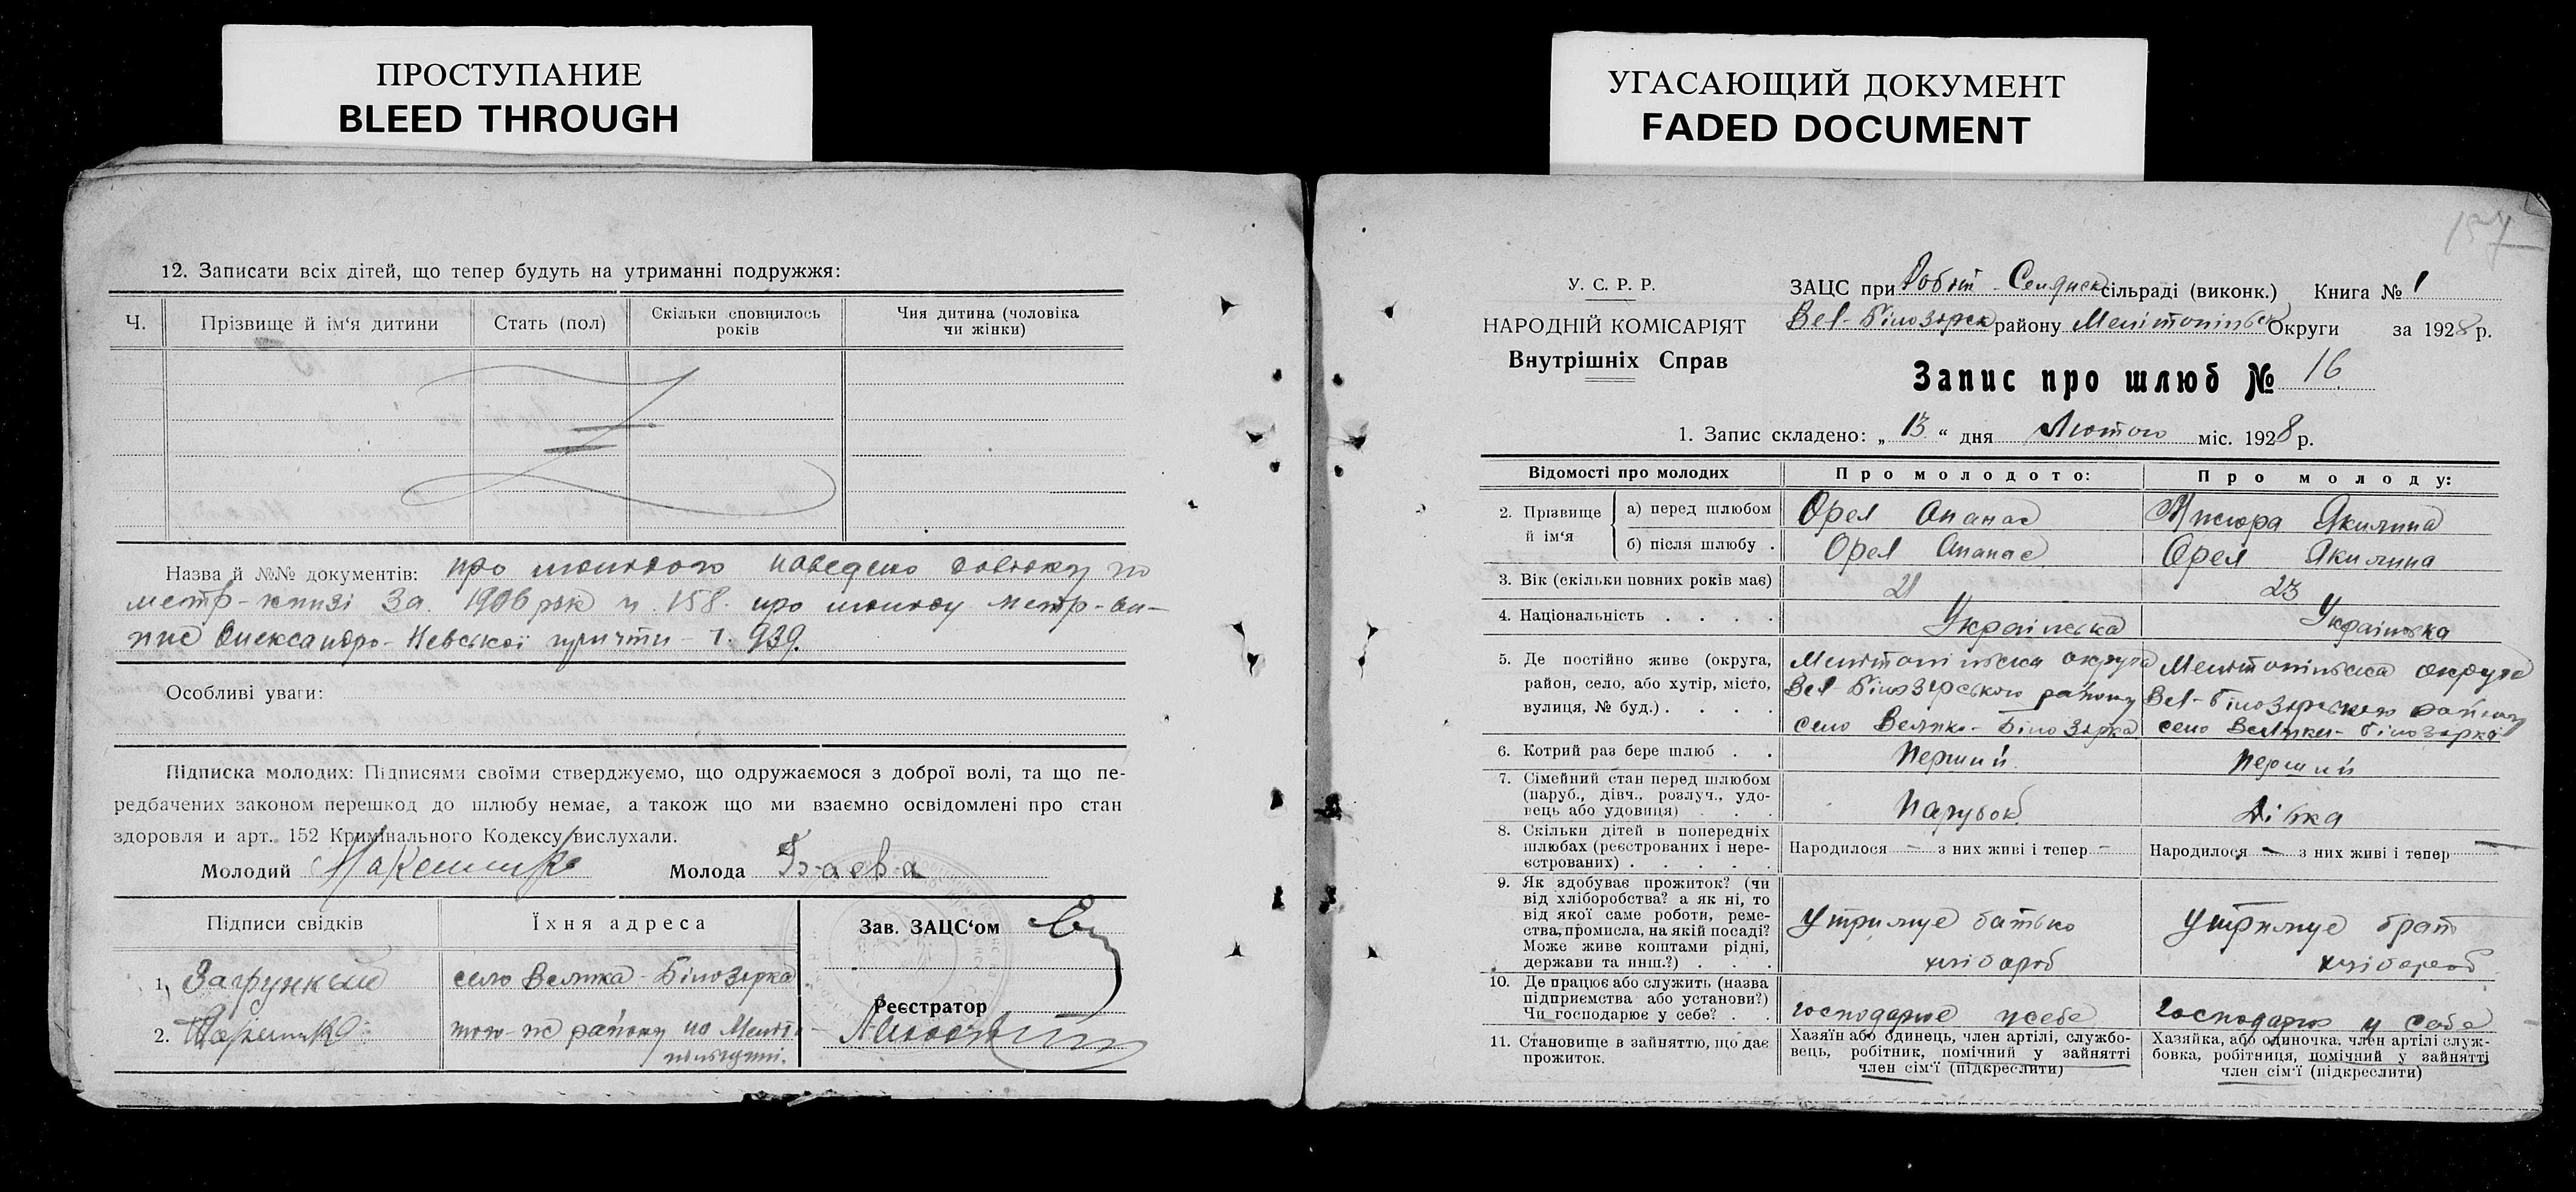 ПРОСТУПАНИЕ
BLEED THROUGH
12. Записати всіх дітей, що тепер будуть на утриманні подружжя:
Ч.
Прізвище й ім'я дитини
Стать (пол)
Скільки сповнилось років
Чия дитина (чоловіка чи жінки)
Назва й №№ документів: про молодого наведено довідку по
метр-книзі за 1906 рок ч. 158. про молоду метр-ви-
пис Олександро-Невської причти - 939.
Особливі уваги:
Підписка молодих: Підписями своїми стверджуємо, що одружаємося з доброї волі, та що пе-
редбачених законом перешкод до шлюбу немає, а також що ми взаємно освідомлені про стан
здоровля и арт. 152 Кримінального Кодексу вислухали.
Молодий
Молода
Підписи свідків
Їхня адреса
Зав. ЗАЦС'ом
1.
село Велика-Білозірка
Реєстратор
2.
того-ж району на Меліт-
УГАСАЮЩИЙ ДОКУМЕНТ
FADED DOCUMENT
157
У. С. Р. Р.
НАРОДНІЙ КОМІСАРІЯТ
Внутрішніх Справ
ЗАЦС при Робіт-Селянск сільраді (виконк.) Книга № 1
Вел-Білозірск району Мелітопільск Округи за 1928 р.
Запис про шлюб № 16
1. Запис складено: „13" дня Лютого міс. 1928 р.
Відомості про молодих
Про молодого:
Про молоду:
2. Прізвище й ім'я
а) перед шлюбом
Орел Опанас
Мисюра Якилина
б) після шлюбу
Орел Опанас
Орел Якилина
3. Вік (скільки повних років має)
21
23
4. Національність
Українська
Українська
5. Де постійно живе (округа,
район, село, або хутір, місто,
вулиця, № буд.)
Мелітопільска округа
Вел-Білозірського району
село Велико-Білозірка
Мелітопільска округа
Вел-Білозірського району
село Велика-Білозірка
6. Котрий раз бере шлюб
Перший
Перший
7. Сімейний стан перед шлюбом
(паруб., дівч., розлуч., удо-
вець або удовиця)
Парубок
Дівка
8. Скільки дітей в попередніх
шлюбах (реєстрованих і нере-
єстрованих)
Народилося — з них живі і тепер —
Народилося — з них живі і тепер —
9. Як здобуває прожиток? (чи
від хліборобства? а як ні, то
від якої саме роботи, реме-
ства, промисла, на якій посаді?
Може живе коштами рідні,
держави та инш.?)
Утримує батько
хлібороб
Утримує брат
хлібороб
10. Де працює або служить (назва
підприємства або установи?)
Чи господарює у себе?
Господарює у себе
Господарює у себе
11. Становище в зайняттю, що дає
прожиток.
Хазяїн або одинець, член артілі, службо-
вець, робітник, помічний у зайнятті
член сім'ї (підкреслити)
Хазяйка, або одиночка, член артілі служ-
бовка, робітниця, помічний у зайнятті
член сім'ї (підкреслити)